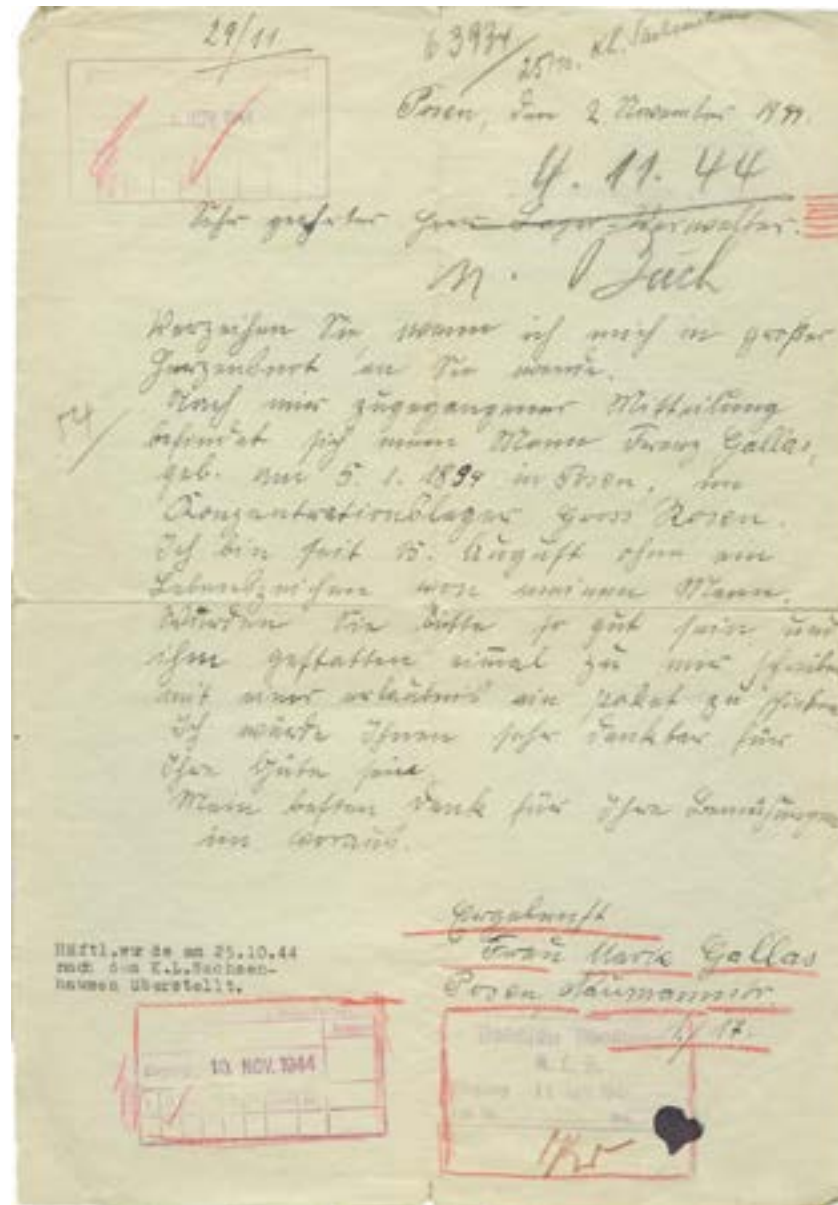 29/11
63934
25/10. Kl. Sachsenhausen
Posen, den 2. November 1944.
NOV 1944
4. 11. 44
Sehr geehrter Herr Lager-Verwalter.
Verzeihen Sie, wenn ich mich in großer
Herzensnot an Sie wende.
Nach mir zugegangener Mitteilung
befindet sich mein Mann Franz Gallas,
geb. am 5. 1. 1894 in Posen, im
Konzentrationslager Gross Rosen.
Ich bin seit 15. August ohne ein
Lebenszeichen von meinen Mann.
Würden Sie bitte so gut sein und
ihm gestatten einmal zu mir schreiben
mit einer erlaubnis ein paket zu schicken
Ich würde Ihnen sehr dankbar für
Ihre Güte sein
Mein besten Dank für ihre Bemühungen
im voraus.
Ergebenst
Frau Maria Gallas
Posen Naumannstr.
17.
Häftl.wurde am 25.10.44
nach dem K.L.Sachsen-
hausen überstellt.
10. NOV. 1944